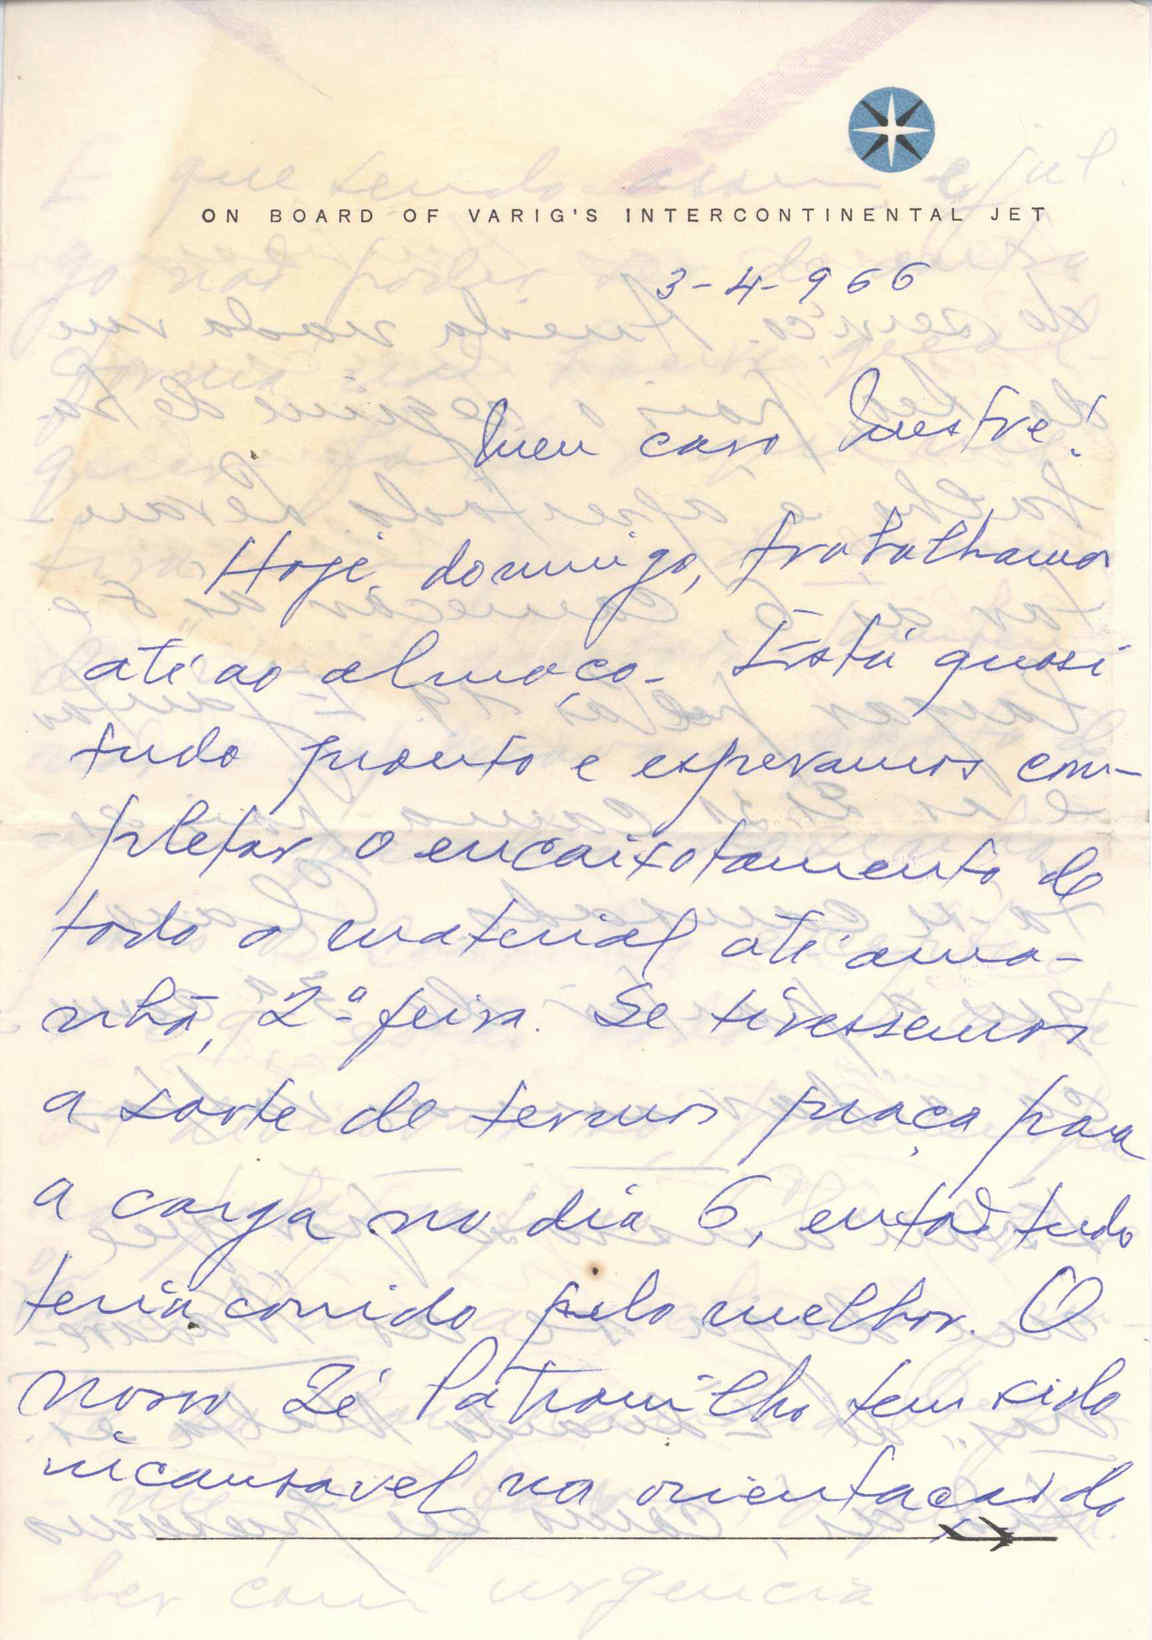 ON BOARD OF VARIG'S INTERCONTINENTAL JET
3-4-966
Meu caro Mestre!
Hoje, domingo, trabalhamos
até ao almoço. Está quasi
tudo pronto e esperamos com-
pletar o encaixotamento de
todo o material até ama-
nhã, 2ª feira. Se tivessemos
a sorte de termos praça para
a carga no dia 6, então tudo
teria corrido pelo melhor. O
nosso Zé Patrouilho tem sido
incansavel na orientação do